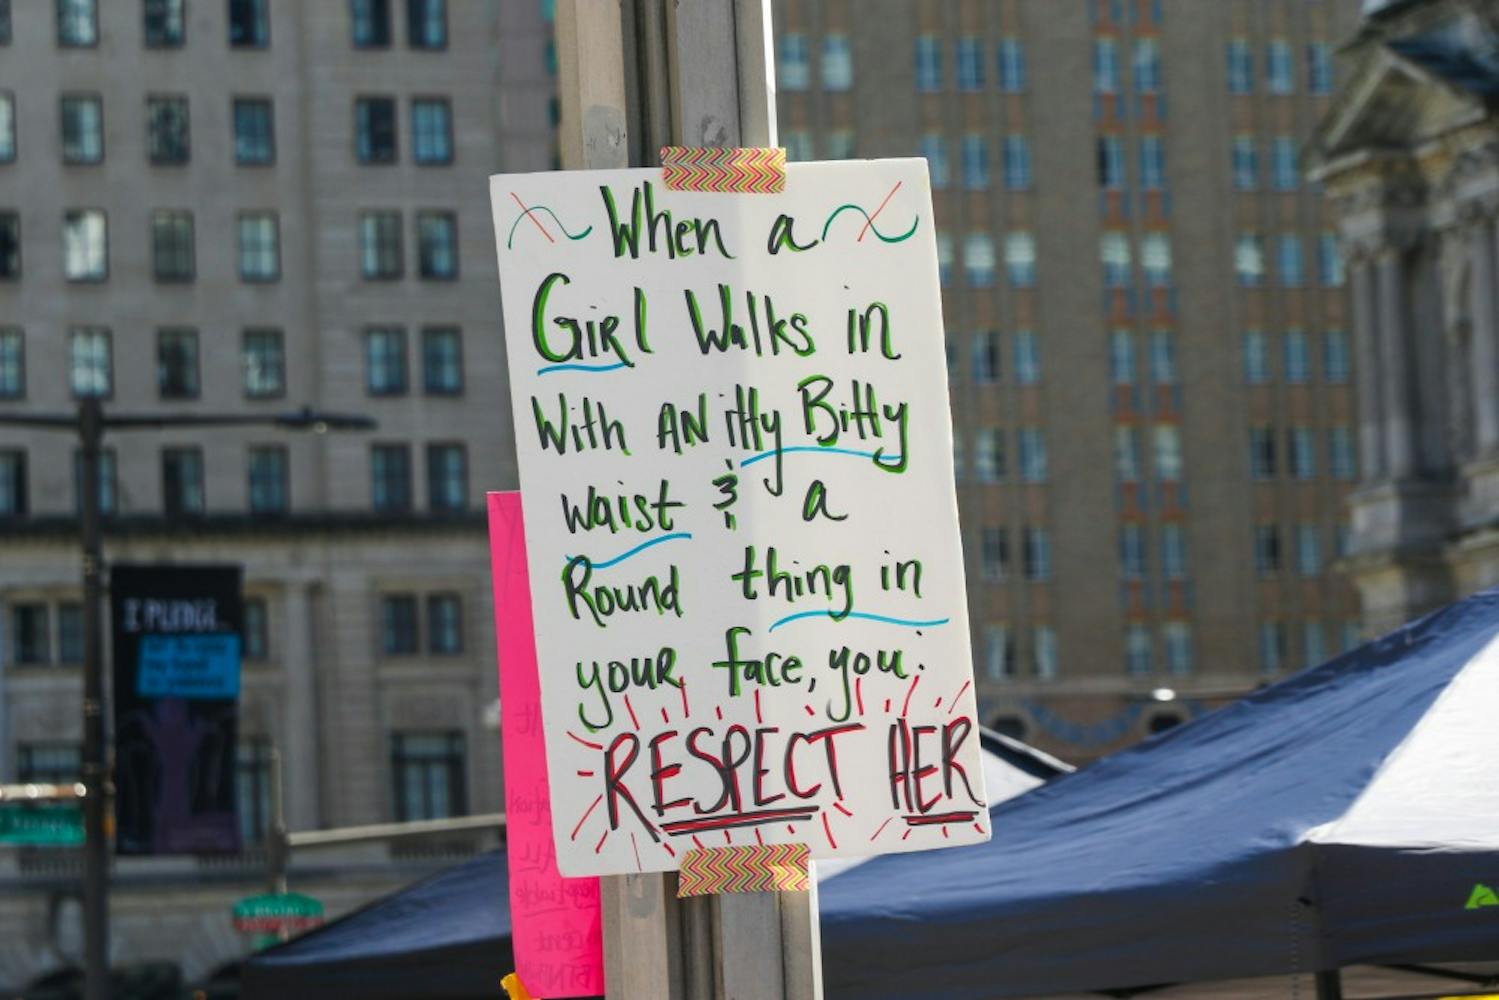 When a
GiRl Walks in
With AN itty Bitty
waist & a
Round thing in
youR face, you:
RESPECT HER
I PLEDGE...